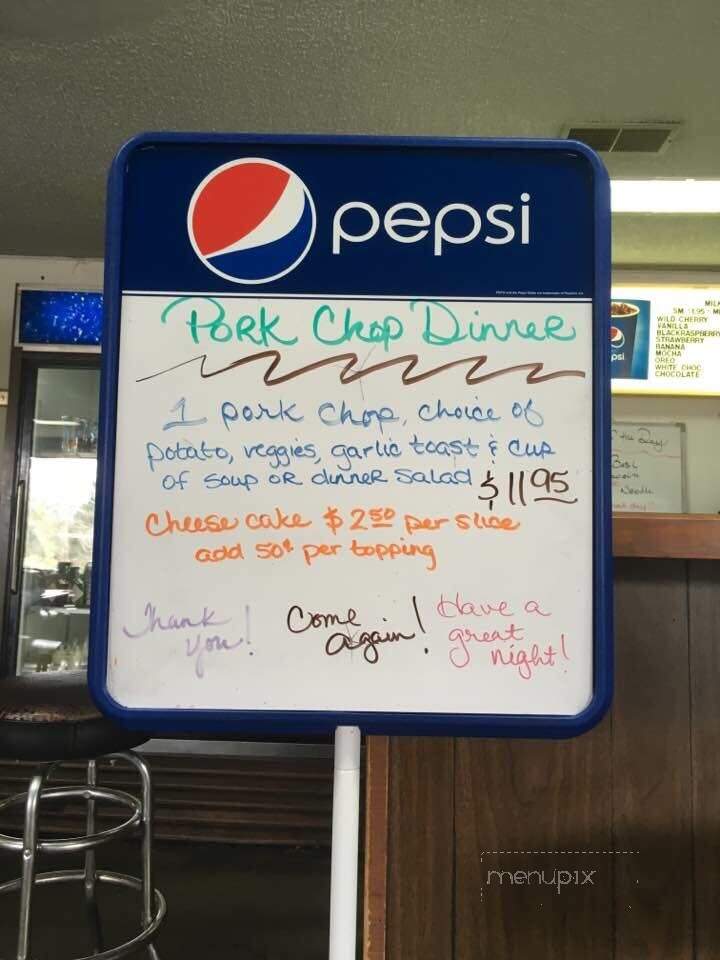 pepsi
Pork Chop Dinner
1 pork chop, choice of
potato, veggies, garlic toast & cup
of soup or dinner salad $11.95
Cheese cake $2.50 per slice
add 50¢ per topping
Thank
you!
Come
again!
Have a
great
night!
MILK
SM 1.95 M
WILD CHERRY
VANILLA
BLACKRASPBERRY
STRAWBERRY
BANANA
MOCHA
OREO
WHITE CHOC
CHOCOLATE
psi
menupix